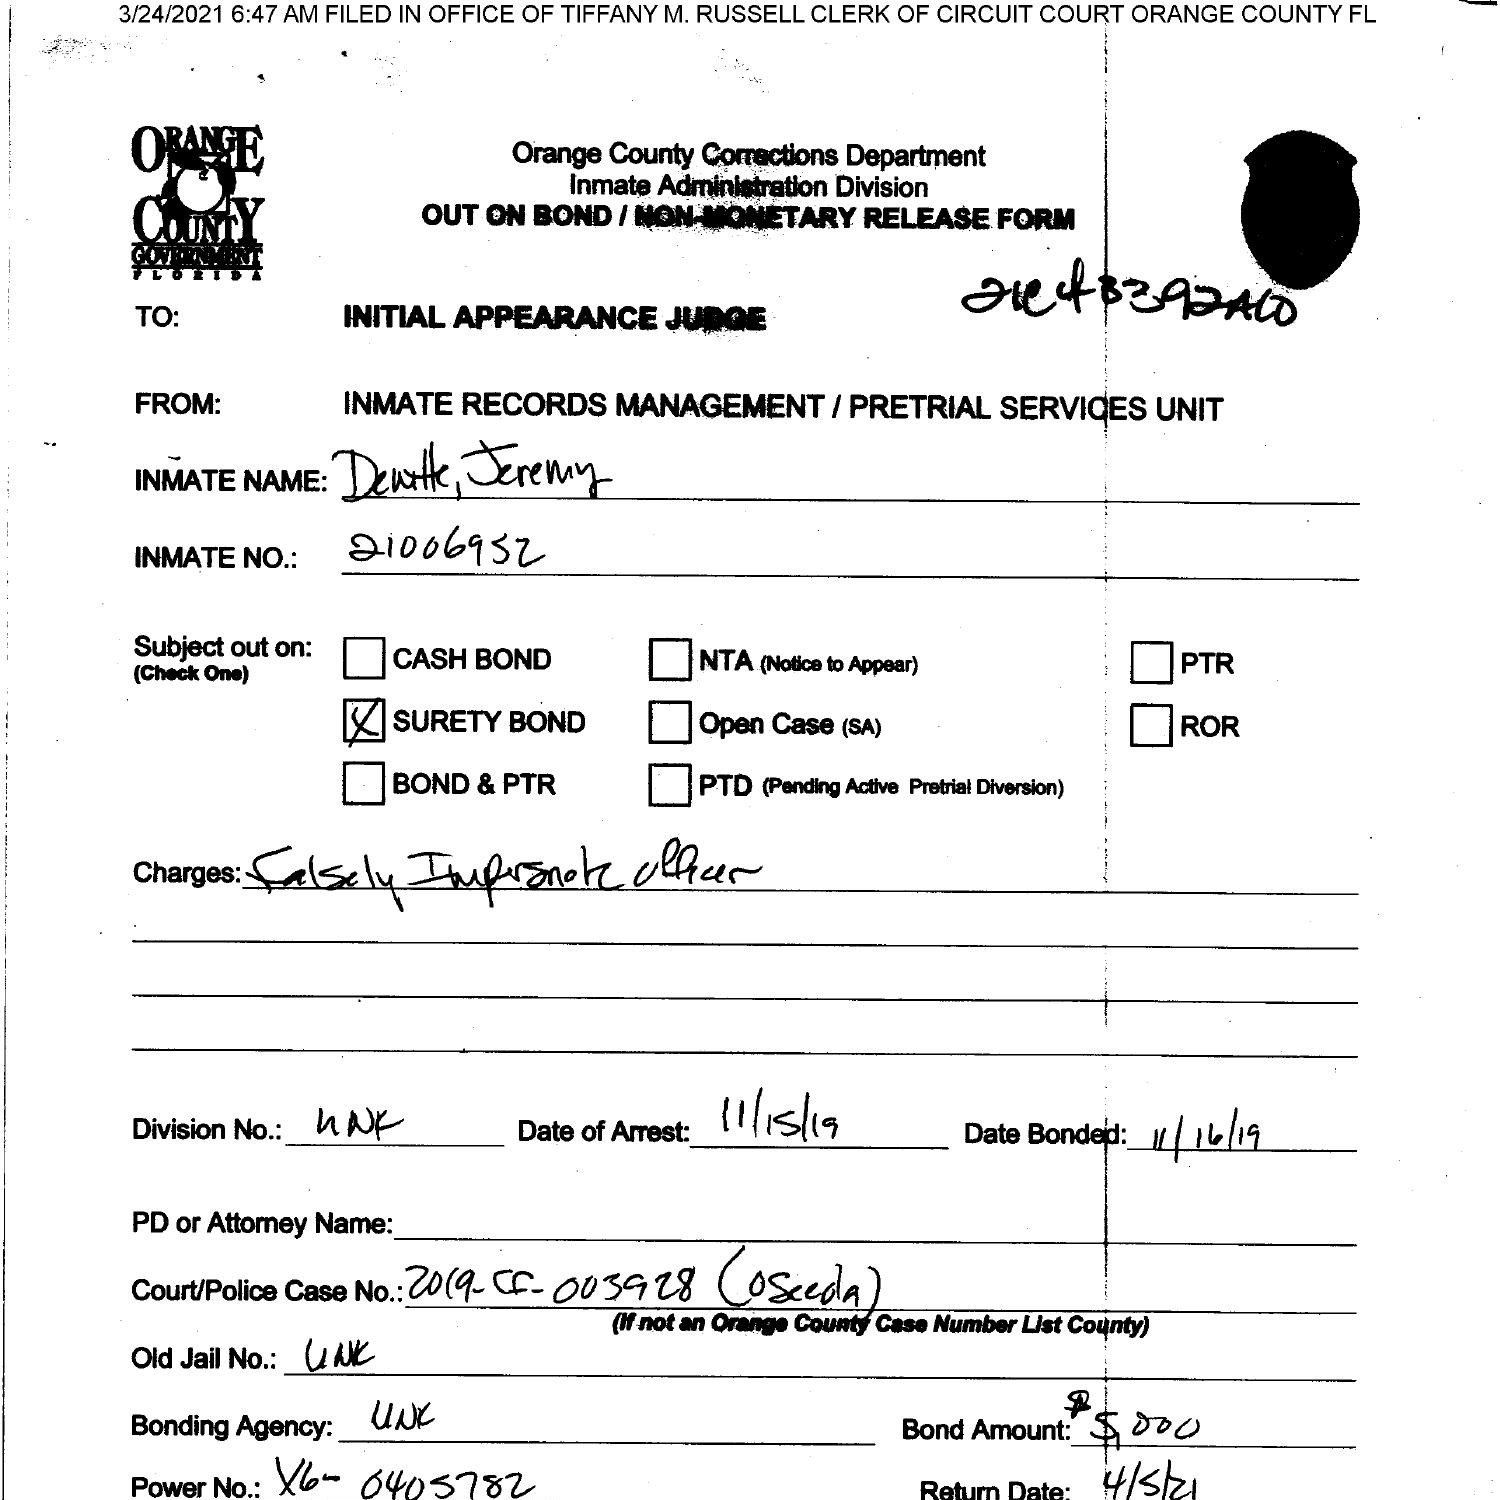 3/24/2021 6:47 AM FILED IN OFFICE OF TIFFANY M. RUSSELL CLERK OF CIRCUIT COURT ORANGE COUNTY FL
ORANGE
COUNTY
GOVERNMENT
FLORIDA
Orange County Corrections Department
Inmate Administration Division
OUT ON BOND / NON-MONETARY RELEASE FORM
TO: INITIAL APPEARANCE JUDGE
FROM: INMATE RECORDS MANAGEMENT / PRETRIAL SERVICES UNIT
INMATE NAME: Dewitte, Jeremy
INMATE NO.: 21006952
Subject out on: CASH BOND NTA (Notice to Appear) PTR
(Check One)
X SURETY BOND Open Case (SA) ROR
BOND & PTR PTD (Pending Active Pretrial Diversion)
Charges: Falsely Impersonate officer
Division No.: UNK Date of Arrest: 11/15/19 Date Bonded: 11/16/19
PD or Attorney Name:
Court/Police Case No.: 2019-CF-003928 (Osceola)
(If not an Orange County Case Number List County)
Old Jail No.: UNK
Bonding Agency: UNK Bond Amount: $5,000
Power No.: X6-0405782 Return Date: 4/5/21